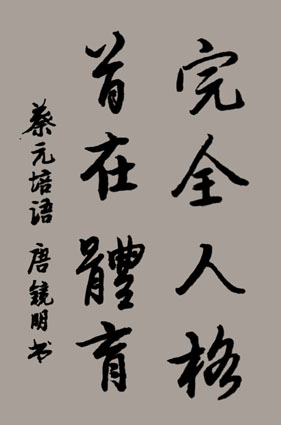 完全人格
首在體育
蔡元培语 唐镜明书